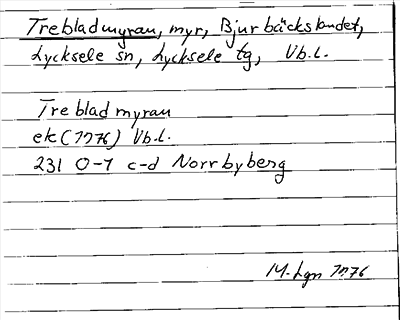 Trebladmyran, myr, Bjurbäckslandet,
Lycksele sn, Lycksele tg, Vb.l.
Trebladmyran
ek (1976) Vb.l.
231 0-1 c-d Norrbyberg
1976